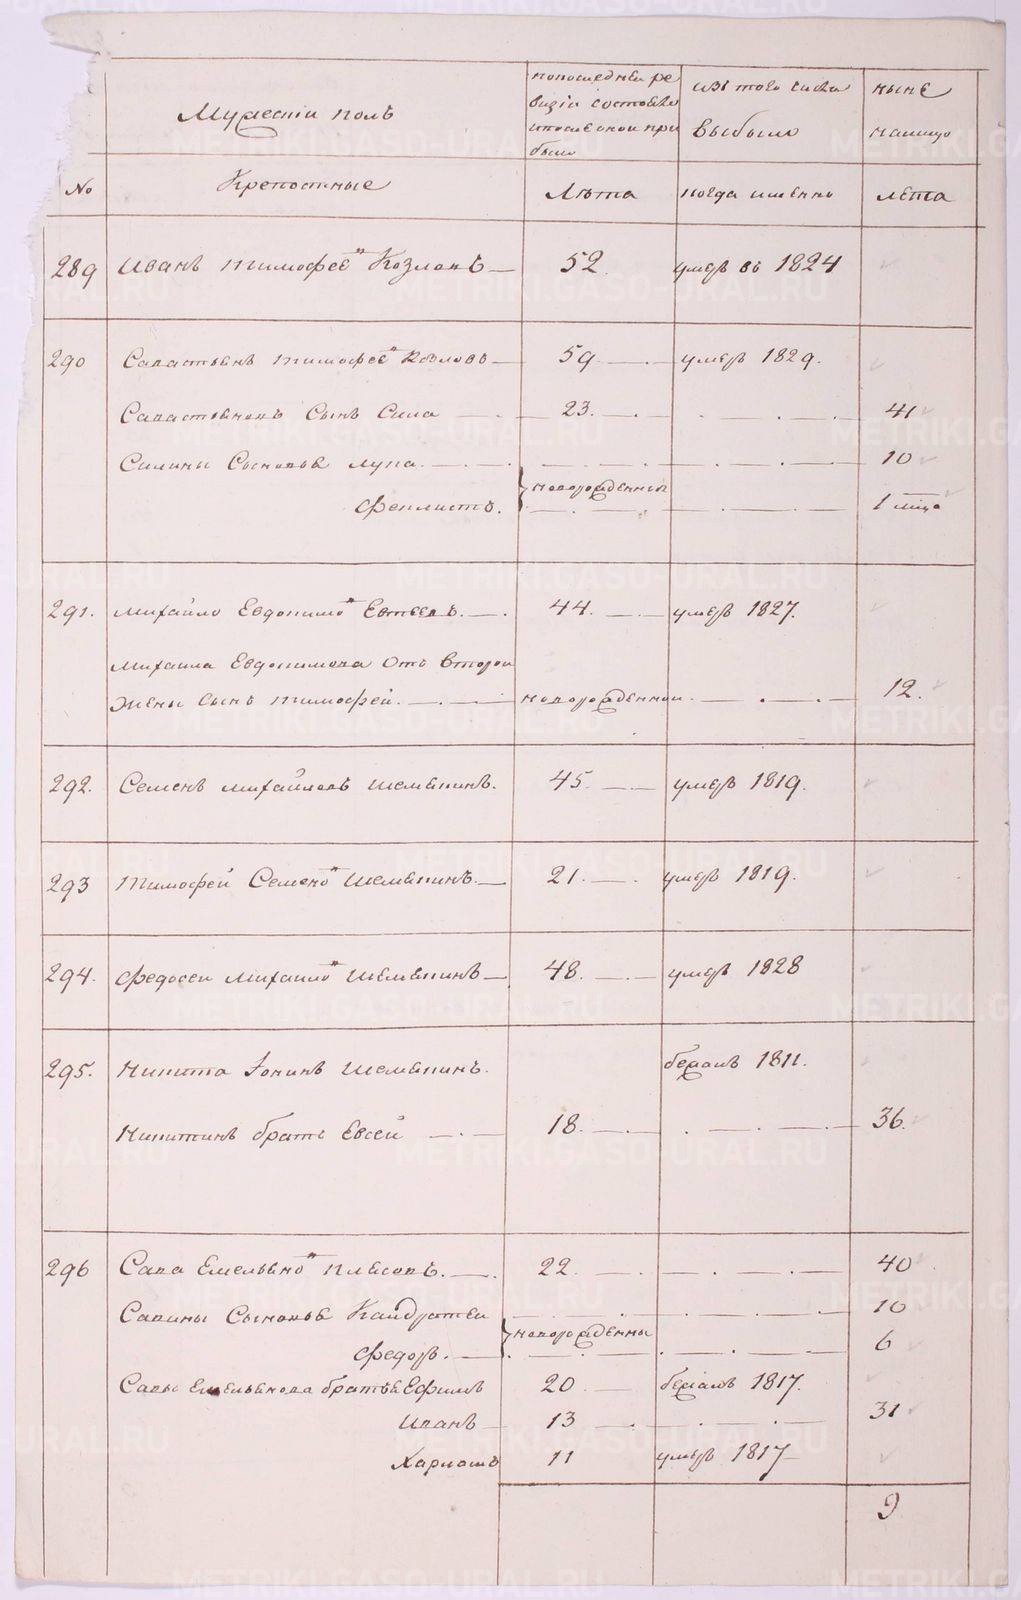 Мужескiй полъ
попоследней ре
визiи состояло
ипослеоной при
было
изъ того числа
выбыло
ныне
налицо
No
Крепостные
Лѣта
когда имянно
лета
289 Иванъ Тимофеевъ Козловъ — 52. умеръ въ 1824
290 Савастьянъ Тимофеевъ Козловъ — 59. умеръ 1829.
Савастьяновъ Сынъ Сила 23. 41
Силины Сыновья Лупа. 10
новорожденныи
Феклистъ. 1 мѣца
291. Михайло Евдокимовъ Евтеевъ. 44. умеръ 1827.
Михаила Евдокимова Отъ Второй
Жены Сынъ Тимофей. новорожденной 12.
292. Семенъ Михайловъ Шемякинъ. 45. умеръ 1819.
293 Тимофей Семеновъ Шемякинъ. 21. умеръ 1819.
294. Федосеи Михаиловъ Шемякинъ 48. умеръ 1828
295. Никита Iонинъ Шемякинъ. бежалъ 1811.
Никитинъ братъ Евсеи 18. 36.
296 Сава Емельяновъ Плясовъ. 22. 40
Савины Сыновья Кандратеи 10
новорожденны
Федоръ. 6
Савы Емельянова братья Ефимъ 20 бежалъ 1817.
Иванъ 13 31
Харламъ 11 умеръ 1817
9
METRIKI.GASO-URAL.RU